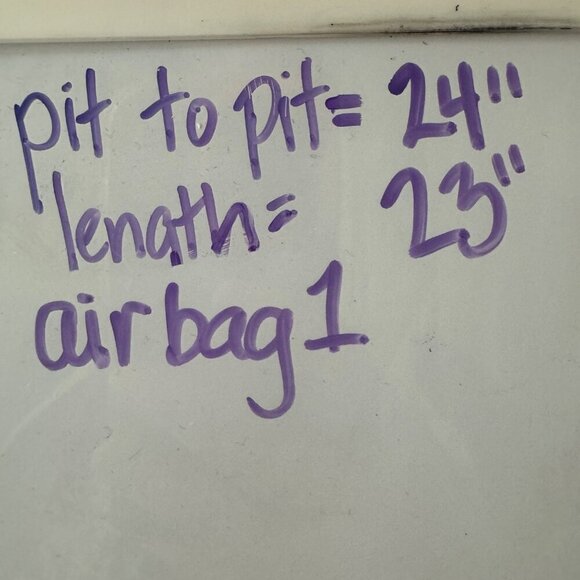 pit to pit= 24"
length= 23"
airbag1